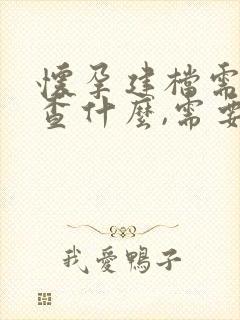 懷孕建檔需
查什麼,需要
我愛鴨子